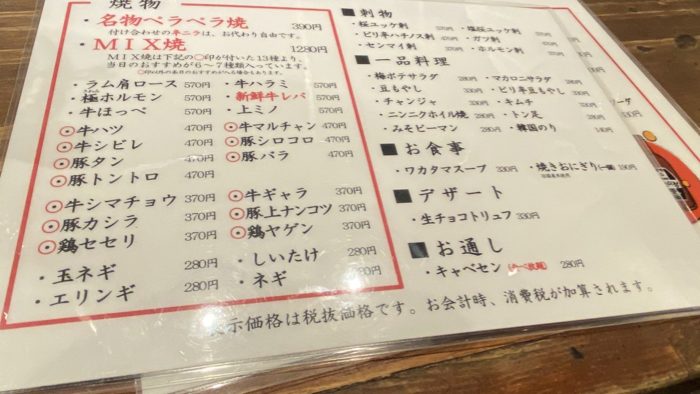 焼物
・名物ペラペラ焼 390円
付け合わせの辛ニラは、お代わり自由です。
・MIX焼 1280円
MIX焼は下記の◯印が付いた13種より、
当日のおすすめが6～7種類入っています。
・ラム肩ロース 570円 ・牛ハラミ 570円
・極ホルモン 570円 ・新鮮牛レバ 570円
・牛ほっぺ 570円 ・上ミノ 570円
◉牛ハツ 470円 ◉牛マルチャン 470円
◉牛シビレ 470円 ◉豚シロコロ 470円
◉豚タン 470円 ◉豚バラ 470円
◉豚トントロ 470円
◉牛シマチョウ 370円 ◉牛ギャラ 370円
◉豚カシラ 370円 ◉豚上ナンコツ 370円
◉鶏セセリ 370円 ◉鶏ヤゲン 370円
・玉ネギ 280円 ・しいたけ 280円
・エリンギ 280円 ・ネギ 280円
■刺物
・桜ユッケ刺 ・塩桜ユッケ刺
・ピリ辛ハチノス刺 ・ガツ刺
・センマイ刺 ・ホルモン刺
■一品料理
・梅ポテサラダ ・マカロニサラダ
・豆もやし ・ピリ辛豆もやし
・チャンジャ ・キムチ
・ニンニクホイル焼 ・トン足
・みそピーマン 280円 ・韓国のり 140円
■お食事
・ワカタマスープ 330円 ・焼きおにぎり(一個) 190円
■デザート
・生チョコトリュフ 330円
■お通し
・キャベセン 280円
示価格は税抜価格です。お会計時、消費税が加算されます。